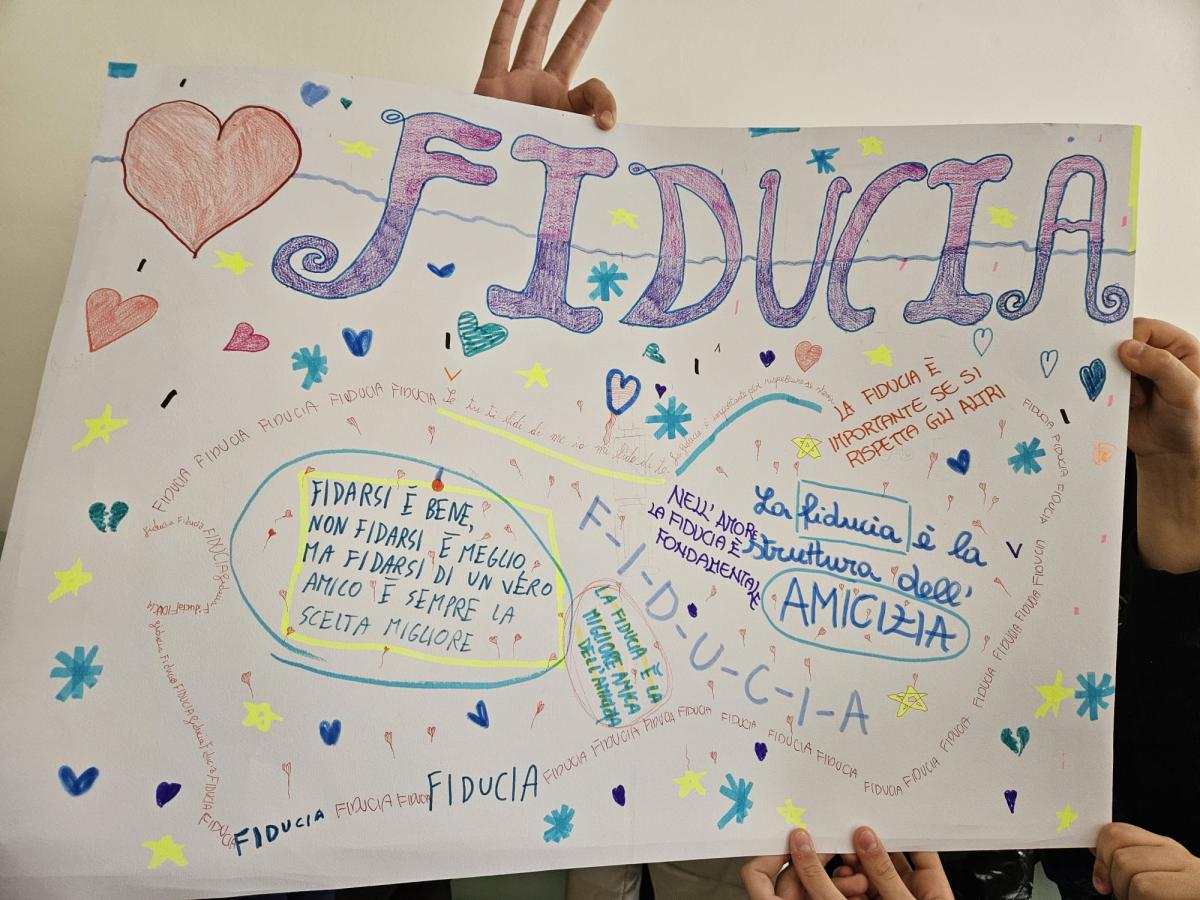 FIDUCIA
FIDUCIA FIDUCIA FIDUCIA FIDUCIA FIDUCIA
Se tu ti fidi di me io mi fido di te
la fiducia è importante per rispettare
LA FIDUCIA È
IMPORTANTE SE SI
RISPETTA GLI ALTRI
FIDARSI È BENE,
NON FIDARSI È MEGLIO
MA FIDARSI DI UN VERO
AMICO È SEMPRE LA
SCELTA MIGLIORE
NELL'AMORE
LA FIDUCIA È
FONDAMENTALE
La fiducia è la
struttura dell'
AMICIZIA
F-I-D-U-C-I-A
LA FIDUCIA È LA
MIGLIORE AMICA
DELL'AMICIZIA
FIDUCIA FIDUCIA FIDUCIA FIDUCIA FIDUCIA FIDUCIA
fiducia Fiducia FIDUCIA fiducia
Fiducia FIDUCIA
fiducia Fiducia FIDUCIA fiducia FIDUCIA Fiducia FIDUCIA FIDUCIA
FIDUCIA FIDUCIA FIDUCIA FIDUCIA
FIDUCIA FIDUCIA FIDUCIA FIDUCIA FIDUCIA FIDUCIA FIDUCIA FIDUCIA